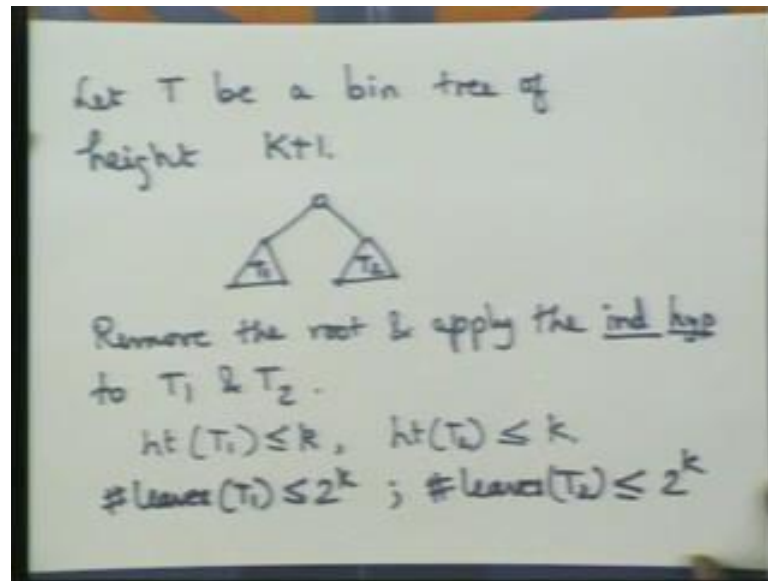 Let T be a bin tree of
height K+1.
T₁ T₂
Remove the root & apply the ind hyp
to T₁ & T₂.
ht (T₁) ≤ k, ht(T₂) ≤ k
# leaves (T₁) ≤ 2ᵏ ; # leaves(T₂) ≤ 2ᵏ